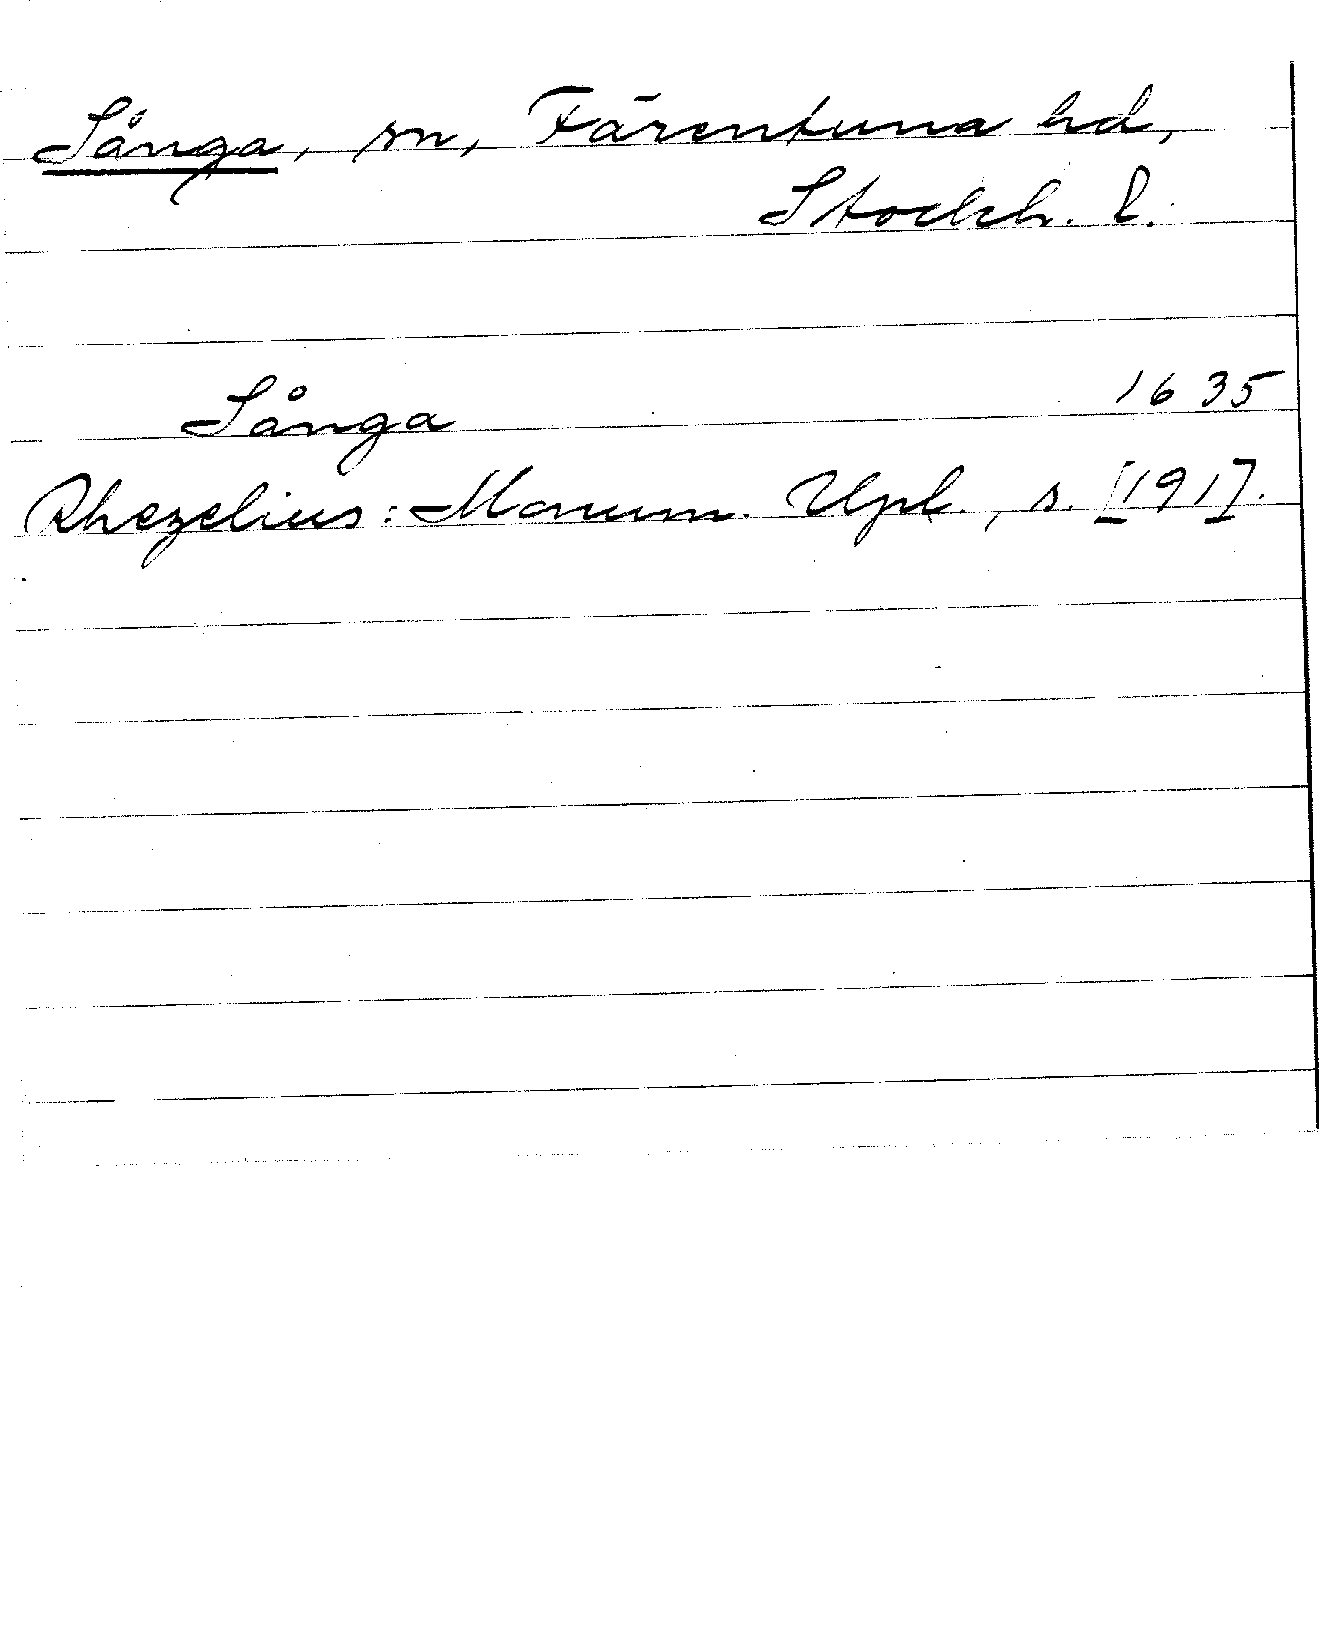 Sånga, sn, Färentuna hd,
Stockh. l.
Sånga 1635
Rhezelius: Monum. Upl., s. [191].